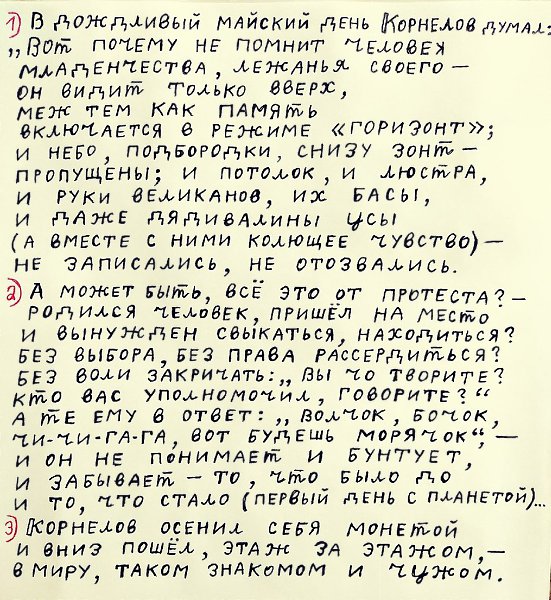 1) В дождливый майский день Корнелов думал:
„Вот почему не помнит человек
младенчества, лежанья своего –
он видит только вверх,
меж тем как память
включается в режиме «горизонт»;
и небо, подбородки, снизу зонт –
пропущены; и потолок, и люстра,
и руки великанов, их басы,
и даже дядивалины усы
(а вместе с ними колющее чувство) –
не записались, не отозвались.
2) А может быть, всё это от протеста? –
родился человек, пришёл на место
и вынужден свыкаться, находиться?
Без выбора, без права рассердиться?
Без воли закричать: „Вы чо творите?
Кто вас уполномочил, говорите?“
А те ему в ответ: „волчок, бочок,
чи-чи-га-га, вот будешь морячок“, –
и он не понимает и бунтует,
и забывает – то, что было до
и то, что стало (первый день с планетой)...
3) Корнелов осенил себя монетой
и вниз пошёл, этаж за этажом, –
в миру, таком знакомом и чужом.